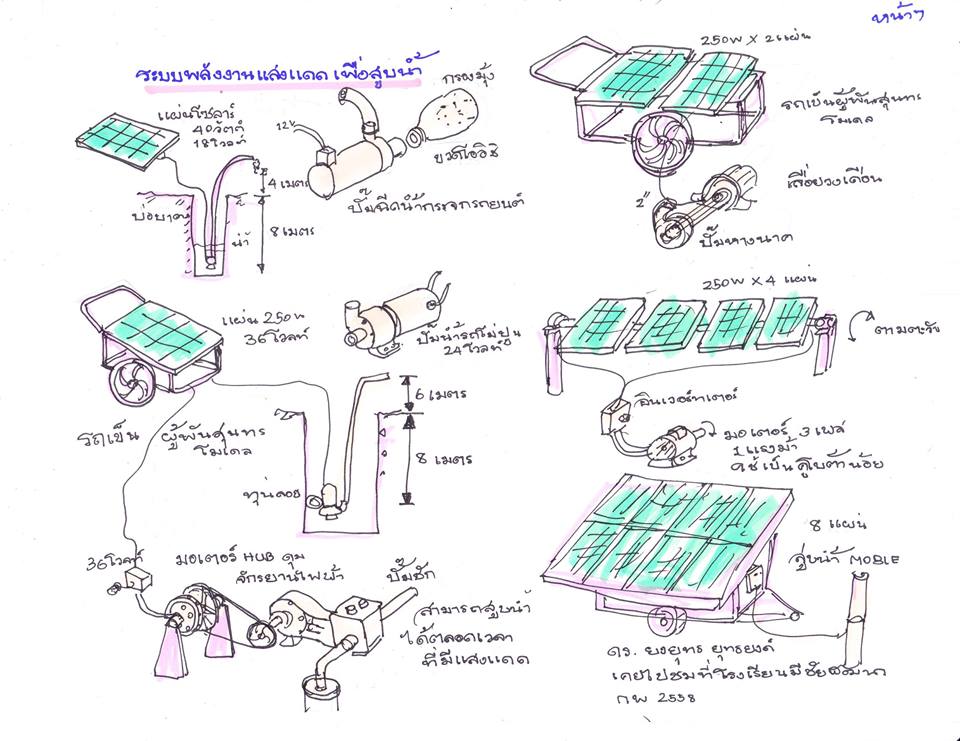 หน้า ๆ
ระบบพลังงานแสงแดด เพื่อสูบน้ำ
แผ่นโซลาร์
40วัตต์
18โวลท์
4 เมตร
บ่อบาดาล
น้ำ
8 เมตร
12V
กรองมุ้ง
ขวดโออิชิ
ปั๊มฉีดน้ำกระจกรถยนต์
แผ่น 250W
36โวลท์
รถเข็น ผู้พันสุนทร
โมเดล
ปั๊มน้ำรถโม่ปูน
24โวลท์
6 เมตร
8 เมตร
ทุ่นลอย
36โวลท์
มอเตอร์ HUB ดุม
จักรยานไฟฟ้า
ปั๊มชัก
สามารถสูบน้ำ
ได้ตลอดเวลา
ที่มีแสงแดด
250W X 2แผ่น
รถเข็นผู้พันสุนทร
โมเดล
2"
เลื่อยวงเดือน
ปั๊มหางนาค
250W X 4 แผ่น
ตามตะวัน
อินเวอร์ทเตอร์
มอเตอร์ 3 เฟส
1 แรงม้า
8 แผ่น
สูบน้ำ MOBLE
ดร. ยงยุทธ ยุทธยงค์
เคยไปชมที่โรงเรียนมีชัยพัฒนา
กพ 2558